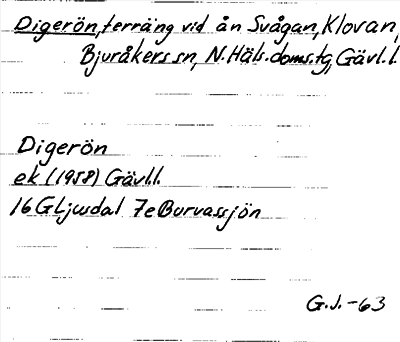 Digerön, terräng vid ån Svågan, Klovan,
Bjuråkers sn, N. Häls. doms.tg, Gävl.l.
Digerön
ek (1958) Gävl.l.
16 G Ljusdal 7e Burvassjön
G.J.-63